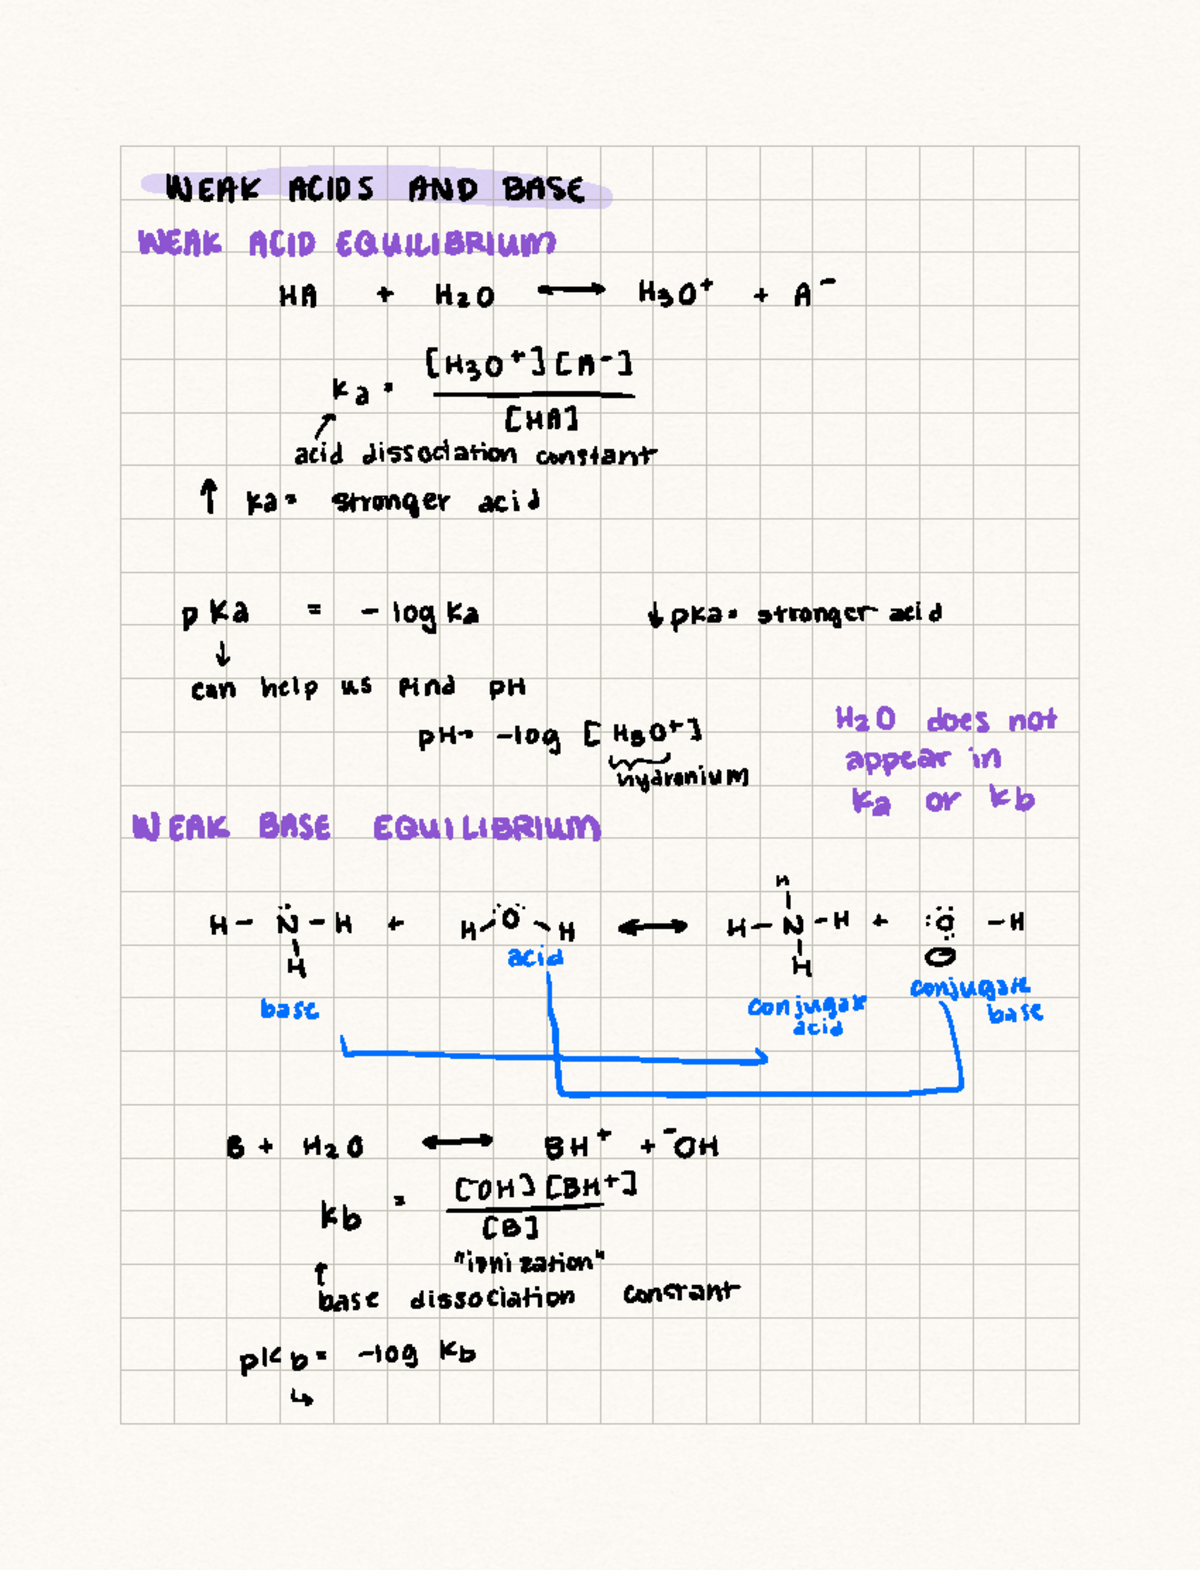 WEAK ACIDS AND BASE
WEAK ACID EQUILIBRIUM
HA + H2O ⟷ H3O+ + A−
ka = [H3O+][A−] / [HA]
acid dissociation constant
↑ ka = stronger acid
pKa = - log Ka ↓ pka = stronger acid
↓
can help us find pH
pH = -log [H3O+]
hydronium
H2O does not
appear in
Ka or Kb
WEAK BASE EQUILIBRIUM
H
H - N - H + H O H ⟷ H - N - H + O - H
H H
acid
base
conjugate
acid
conjugate
base
B + H2O ⟷ BH+ + −OH
kb = [−OH][BH+] / [B]
"ionization"
↑
base dissociation constant
pKb = -log Kb
↳